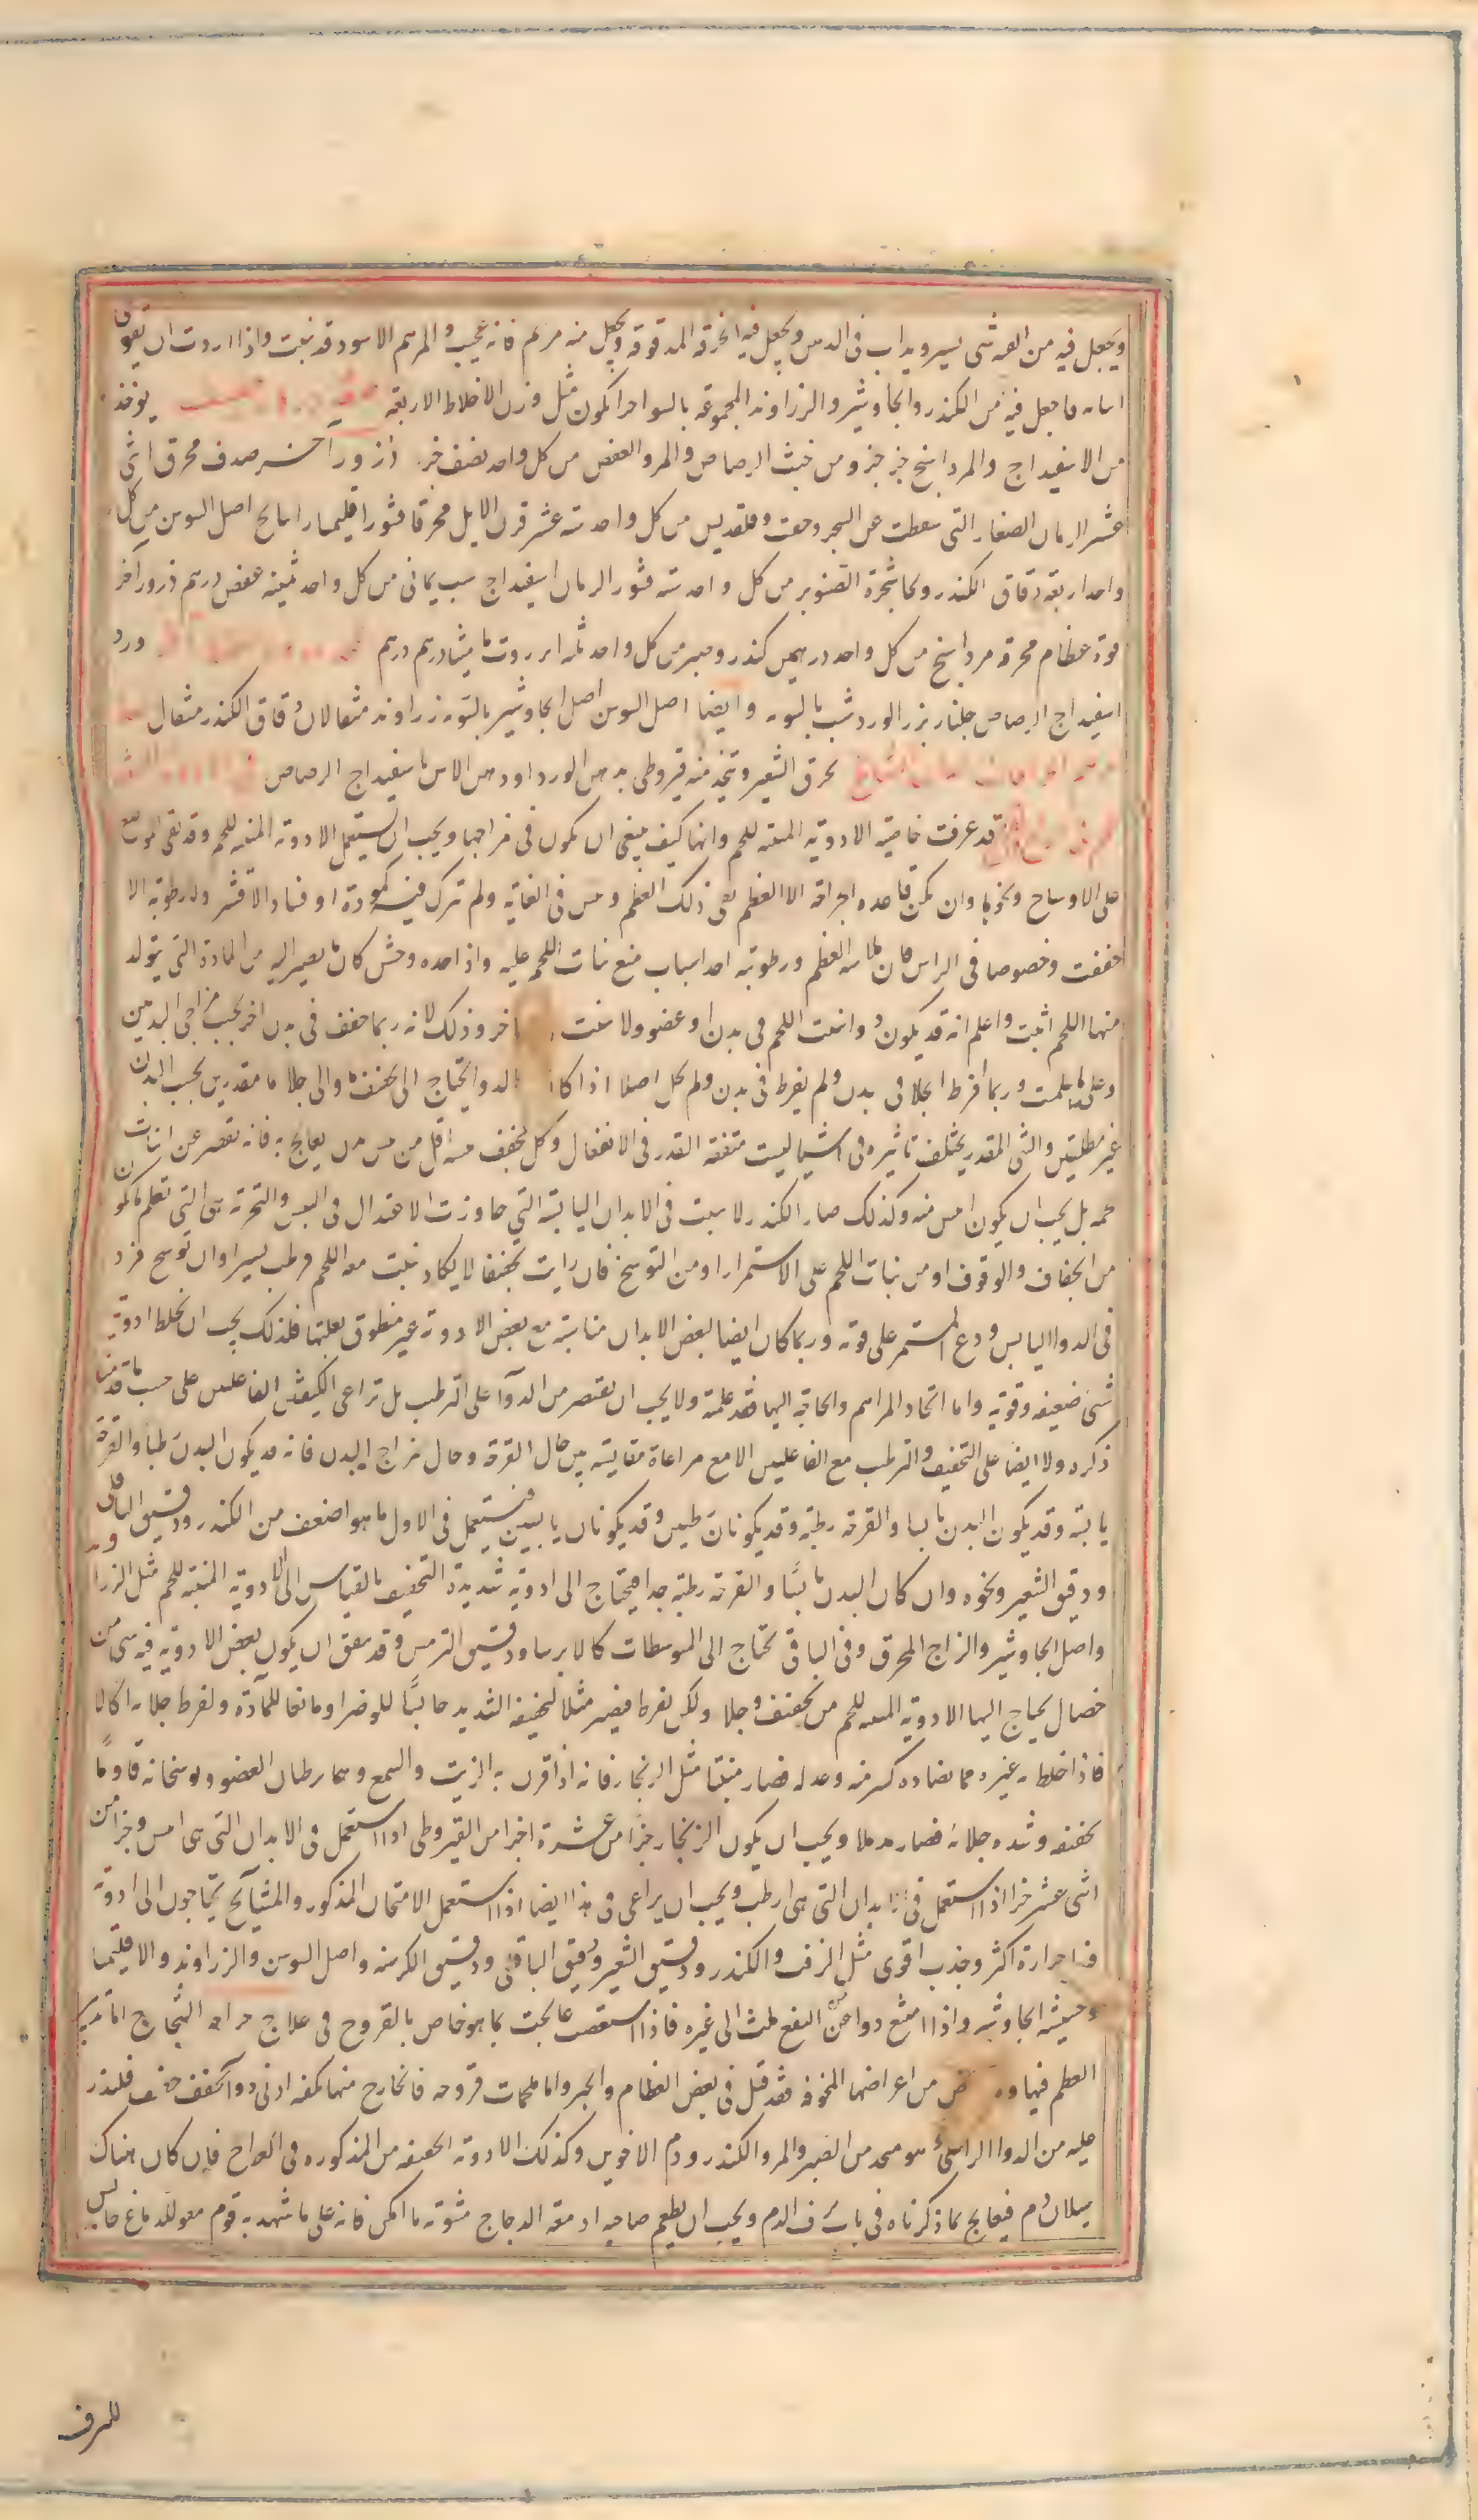 ويجعل فيه من القه شى يسير ويداب فى الدهن ويجعل فيه الخرقة المدقوقة ويجعل منه مرهم فانه عجيب والمرهم الاسود قد ينبت واذا اردت ان تقوى
فاجعل فيه من الكندر والجاوشير والزراوند المجموعة بالسوا جزا يكون مثل وزن الاخلاط الاربعة يوخذ
من الاسفيداج والمرداسنج جز جز ومن خبث الرصاص والمر والعفص من كل واحد نصف جز ذرور آخر صدف محرق اثنى
عشر الرمان الصغار التى سقطت عن الشجر وجفت وقلقديس من كل واحد ستة عشر قرن الايل محرقا قشور اقليميا راتيانج اصل السوسن من كل
واحد اربعة دقاق الكندر ولحا شجرة الصنوبر من كل واحد ستة قشور الرمان اسفيداج شب يمانى من كل واحد ثمنية عفص درهم ذرور آخر
قوة عظام محرقة مرداسنج من كل واحد درهمين كندر وصبر من كل واحد ثلثه انزروت ماميثا درهم درهم ورد
اسفيداج الرصاص جلنار بزر الورد شب بالسويه وايضا اصل السوسن اصل الجاوشير بالسويه زراوند مثقالان دقاق الكندر مثقال
يحرق الشعير ويتخذ منه قيروطى بدهن الورد او دهن الاس باسفيداج الرصاص
قد عرفت خاصية الادوية المنبتة للحم وانها كيف ينبغى ان يكون فى مزاجها ويجب ان يستعمل الادوية المنبته للحم وقد نقى الموضع
على الاوساخ ونحوها وان يكن قاعده اجزاته الا العظم نقى ذلك العظم وحس فى الغاية ولم تترك فيه كمودة او فساد الا قشر ولا رطوبة الا
جففت وخصوصا فى الراس فان ملاسه العظم ورطوبته احد اسباب منع نبات اللحم عليه واذا حده وخشن كان ما يصير اليه من المادة التى يتولد
منها اللحم اثبت واعلم انه قد يكون دوا ينبت اللحم فى بدن او عضو ولا ينبت اخر وذلك لانه ربما جفف فى بدن اخر بحسب مزاجى البدنين
وعلى ما علمت وربما افرط الجلا فى بدن ولم يفرط فى بدن ولم يحل اصلا اذا كان الدوا يحتاج الى تجفيف ما والى جلا ما مقدرين بحسب البدن
غير مطلقين والشى المقدر يختلف تاثيره فى اشيا ليست متفقة القدر فى الانفعال وكل مجفف يبسه اقل من يبس من يعالج به فانه تقصر عن انبات
لحمه بل يجب ان يكون ايبس منه وكذلك صار الكندر لا ينبت فى الابدان اليابسة التى جاوزت الاعتدال فى اليبس والتجربة هى التى تعلم ما يكون
من الجفاف والوقوف او من نبات اللحم على الاستمرار او من التوسخ فان رايت تجفيفا لا يكاد ينبت معه اللحم فرطب يسيرا وان توسخ فزد
فى الدوا اليابس ودع المستمر على قوته وربما كان ايضا لبعض الابدان مناسبة مع بعض الادوية غير منطوق بعلتها فلذلك يجب ان يخلط ادوية
شتى ضعيفة وقوية واما اتخاذ المراهم والحاجة اليها فقد علمته ولا يجب ان يقتصر من الدوآ على الترطيب بل تراعى الكيفيتين الفاعلتين على حسب ما قدمنا
ذكره ولا ايضا على التجفيف والترطيب مع الفاعلتين الا مع مراعاة مقايسة بين حال القرحة وحال مزاج البدن فانه قد يكون البدن رطبا والقرحة
يابسة وقد يكون البدن يابسا والقرحة رطبة وقد يكونان رطبين وقد يكونان يابسين فيستعمل فى الاول ما هو اضعف من الكندر ودقيق الباقلى
ودقيق الشعير ونحوه وان كان البدن يابسا والقرحة رطبة جدا فيحتاج الى ادوية شديدة التجفيف بالقياس الى الادوية المنبتة للحم مثل الزراوند
واصل الجاوشير والزاج المحرق وفى الباقى يحتاج الى المتوسطات كالايرسا ودقيق الترمس وقد يتفق ان يكون بعض الادوية فيه شى من
خصال يحتاج اليها الادوية المنبته للحم من تجفيف وجلا ولكن يفرط فيصير مثلا لتجفيفه الشديد حابسا للوضر او مانعا للمادة ولفرط جلائه اكالا
فاذا خلط به غيره مما يضاده كسر منه وعدله فصار منبتا مثل الزنجار فانه اذا قرن به الزيت والشمع وهما يرطبان العضو ويوسخانه قاوما
تجفيفه وشدة جلائه فصار مدملا ويجب ان يكون الزنجار جزا من عشرة اجزا من القيروطى اذا استعمل فى الابدان التى هى ايبس وجزا من
اثنى عشر جزا اذا استعمل فى ابدان التى هى ارطب ويجب ان يراعى فى هذا ايضا اذا استعمل الامتحان المذكور والمشايخ يحتاجون الى ادوية
حرارة اكثر وجذب اقوى مثل الزفت والكندر ودقيق الشعير ودقيق الباقلى ودقيق الكرسنه واصل السوسن والزراوند والاقليميا
وحشيشة الجاوشير واذا امتنع دوا عن النفع ملت الى غيره فاذا استعصت عالجت بما هو خاص بالقروح فى علاج جراحه الشجاج اما تدبير
العظم فيها من اعراضها المخوفه فقد قيل فى بعض العظام والجبر واما ملحمات قروحه فالخارج منها يكفيه ادنى دوآ مجفف خفيف فليذر
عليه من الدوا الراسى هو متخذ من الصبر والمر والكندر ودم الاخوين وكذلك الادوية الخفيفه من المذكوره فى الجراح فان كان هناك
سيلان دم فيعالج بما ذكرناه فى باب نزف الدم ويجب ان يطعم صاحبه ادمغة الدجاج مشويه ما امكن فانه على ما شهد به قوم مقو للدماغ حابس
للنزف